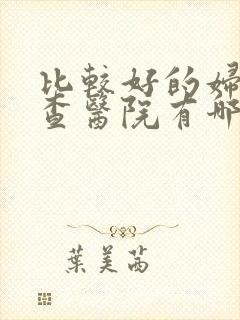 比較好的婦
查醫院有哪
葉美茜